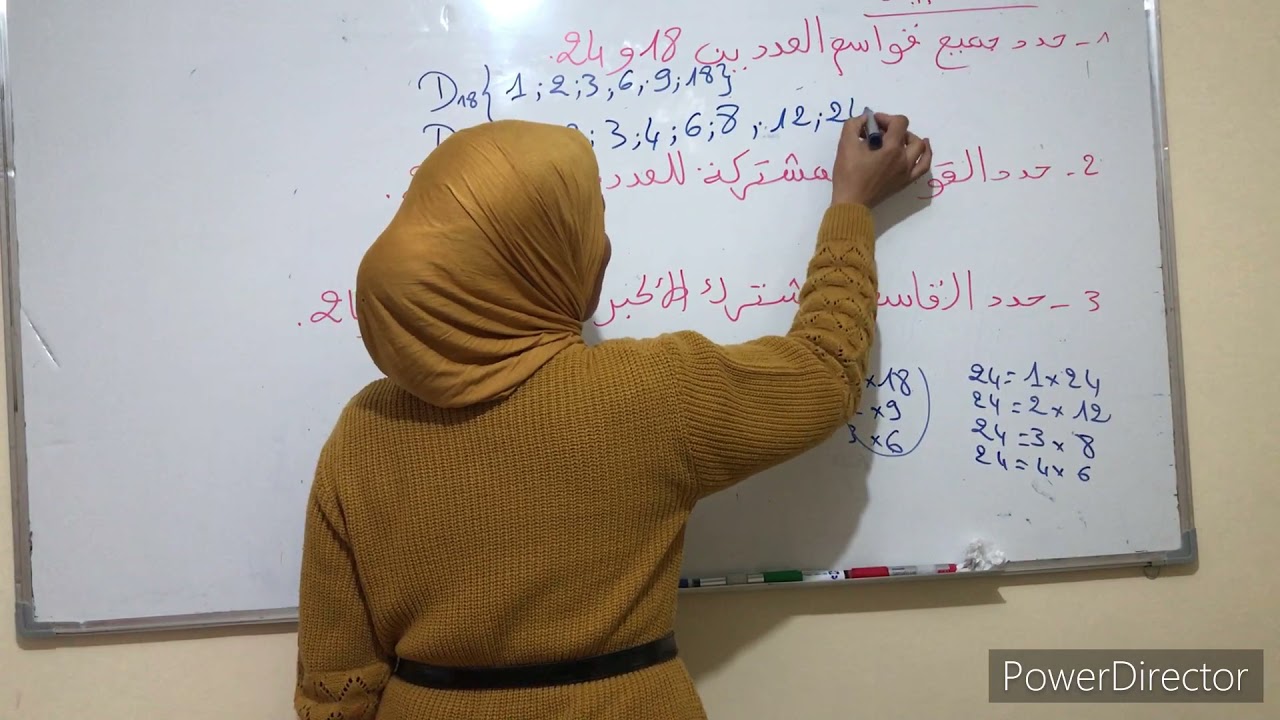 1- حدد جميع قواسم العددين 18 و 24.
D18{ 1 ; 2 ; 3 ; 6 ; 9 ; 18}
D ; 3 ; 4 ; 6 ; 8 ; 12 ; 24
2- حدد القوا مشتركة للعدد .
3- حدد القاسم شترك الأكبر 24.
×18
×9
3 ×6
24 = 1 × 24
24 = 2 × 12
24 = 3 × 8
24 = 4 × 6
PowerDirector